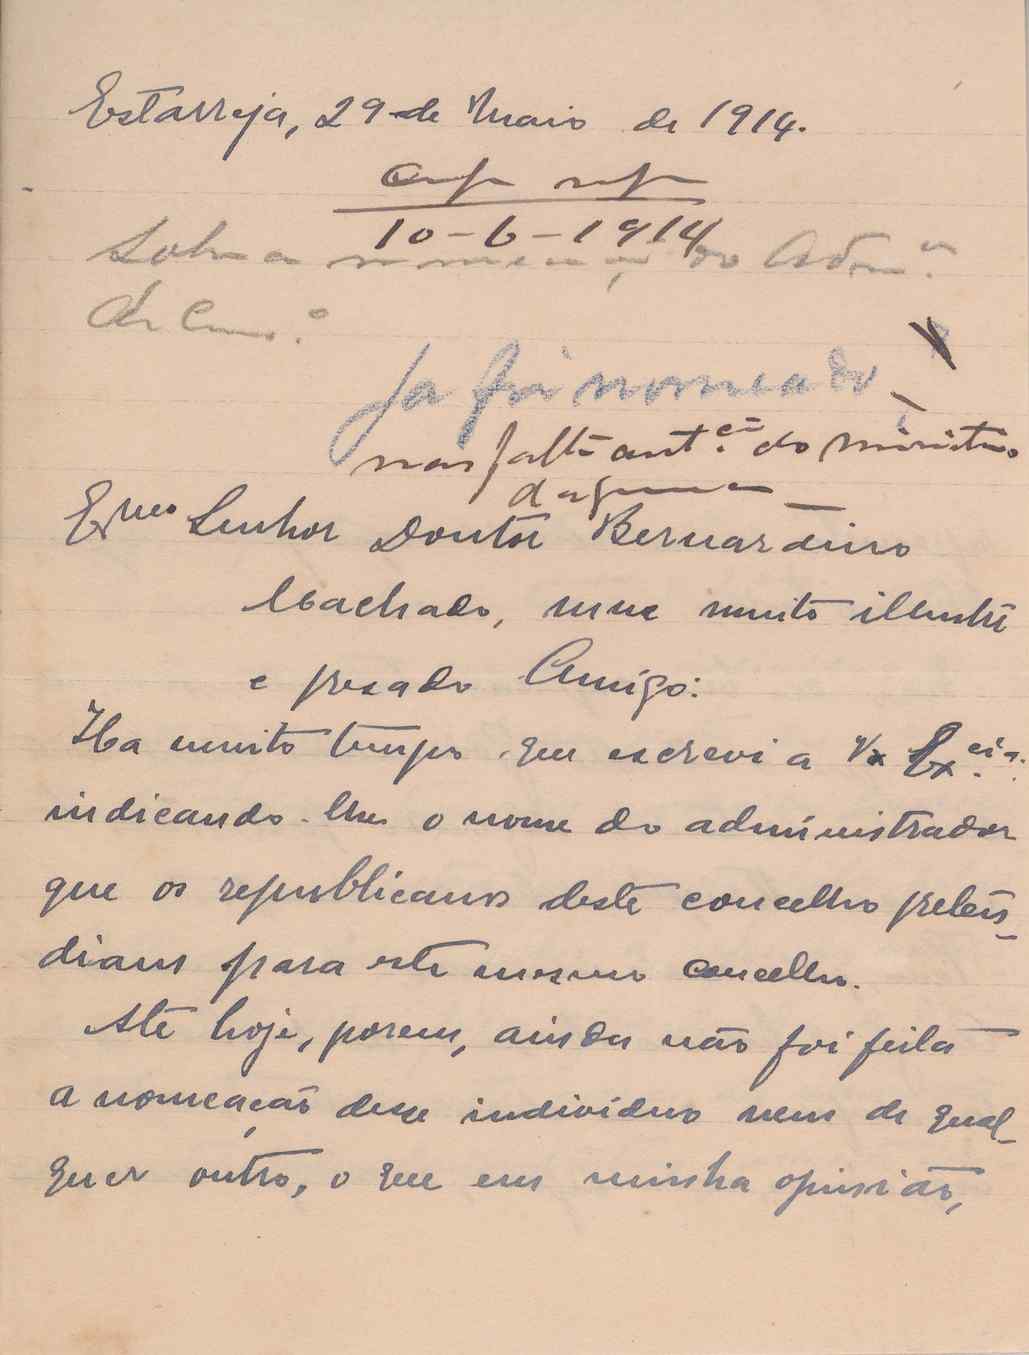 Estarreja, 29 de Maio de 1914.
10-6-1914
Sobre a nomeação do Adm.or
de Conc.º
Ja foi nomeado,
mas falta aut.ção do ministro
da guerra
Exmo Senhor Doutor Bernardino
Machado, meu muito illustre
e presado Amigo:
Ha muito tempo que escrevi a V. Ex.cia
indicando-lhe o nome do administrador
que os republicanos deste concelho preten-
diam para este mesmo concelho.
Até hoje, porem, ainda não foi feita
a nomeação desse individuo nem de qual-
quer outro, o que em minha opinião,